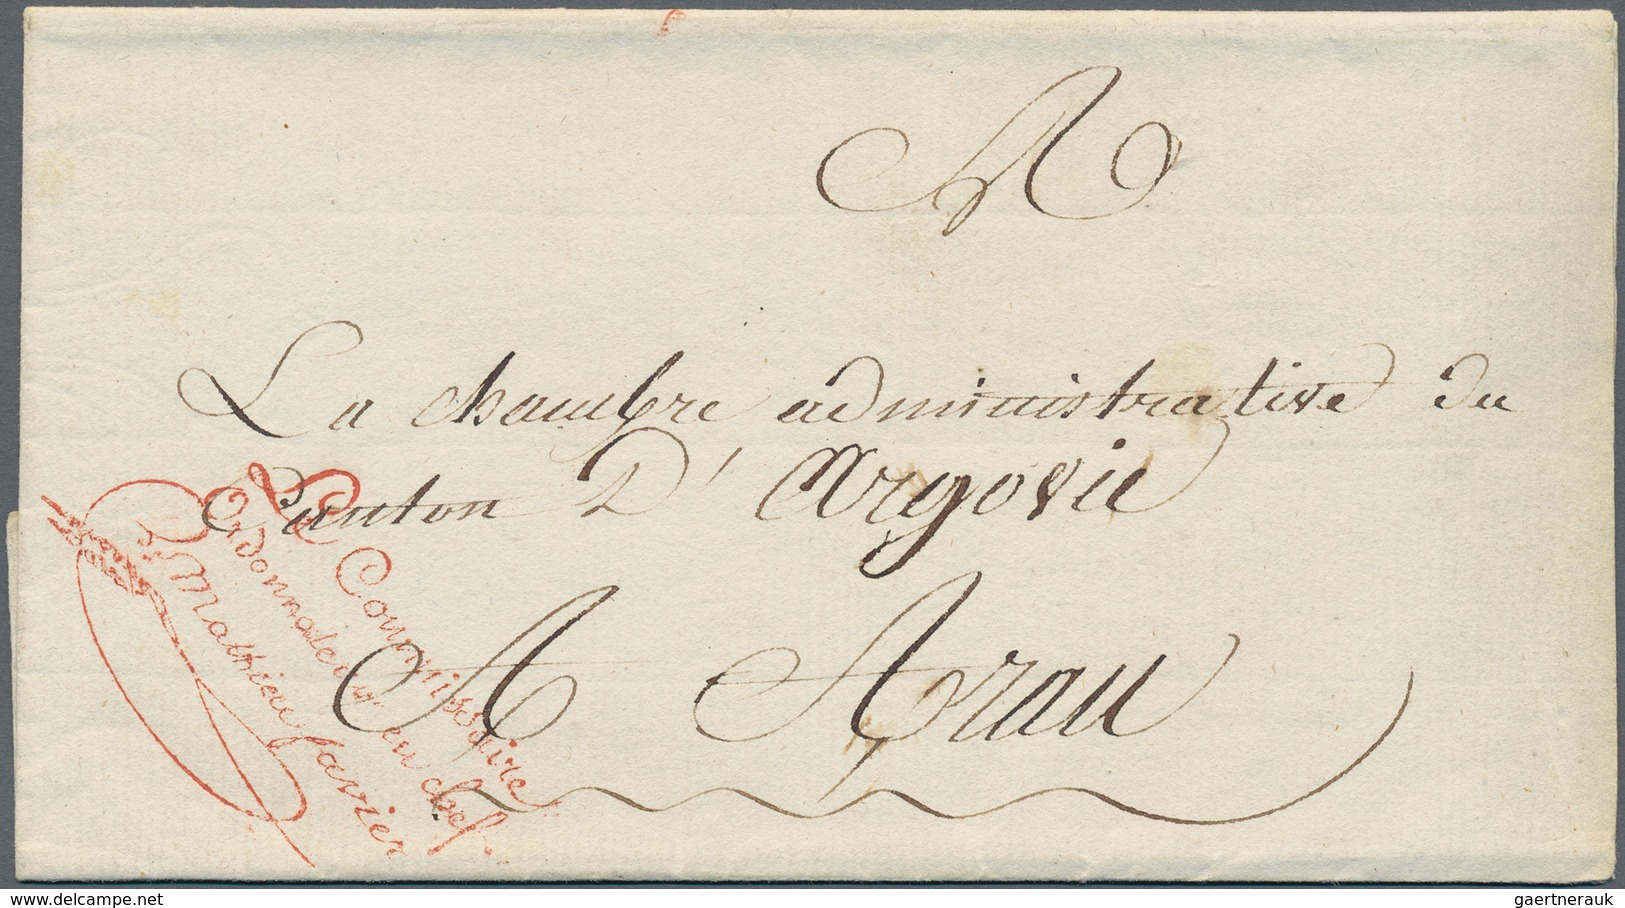 A
La chambre administrative du
Canton D'Argovie
A Arau
Le Commissaire
Ordonnateur en chef
Mathieu favier
gaertnerauk